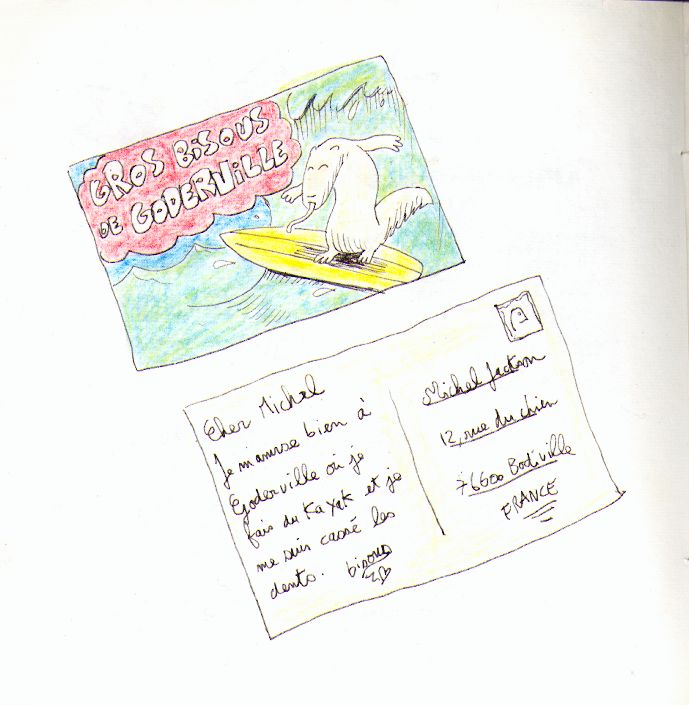 GROS BISOUS
DE GODERVILLE
Cher Michel
Je m'amuse bien à
Goderville où je
fais du Kayak et je
me suis cassé les
dents. bisous
Michel Jackson
12, rue du chien
76600 Bodiville
FRANCE